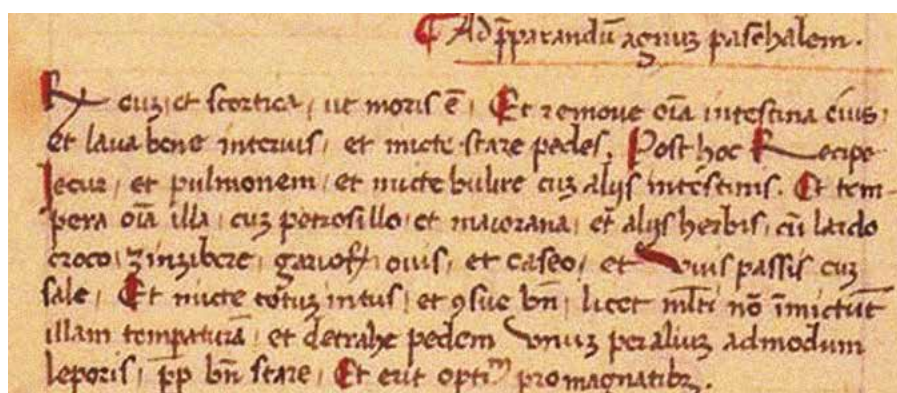 ¶ Ad p̄parandū agnuȝ pascħalem.
℞ euȝ, et scortica, ut moris ē, Et remove oīa intestina eius,
et lava bene interius, et micte stare pedes, Post hoc Recipe
Iecur, et pulmonem, et micte bulire cuȝ alijs intestinis. Et tem-
pera oīa illa, cuȝ petrosillo, et maiorana, et alijs herbis, cū lardo
croco, zinzibere, garioff, ovis, et caseo, et uvis passis cuȝ
sale, Et micte totuȝ intus, et ꝯsue bn̄, licet ml̄ti nō īmictūt
illam temp̄aturā, et detrahe pedem unuȝ per aliuȝ admodum
leporis, p̄p bn̄ stare, Et erit optiᵐ pro magnatibȝ.